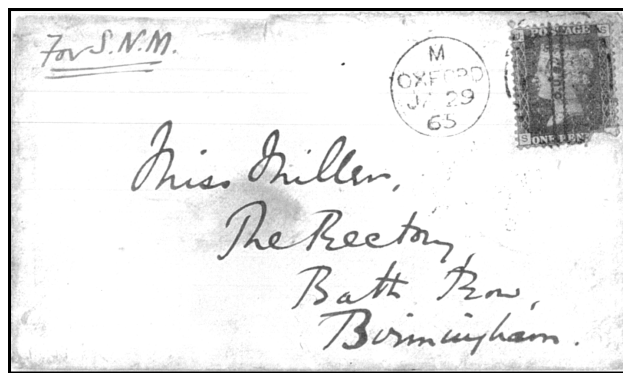 For S.N.M.
M
OXFORD
JA 29
65
POSTAGE
S
ONE PEN
Miss Miller,
The Rectory,
Bath Row,
Birmingham.